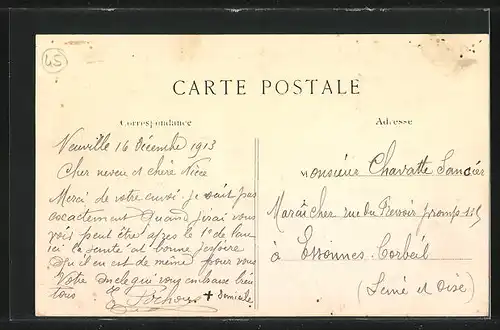 45
CARTE POSTALE
Correspondance
Adresse
Neuville 16 Décembre 1913
Cher neveu et chère Nièce
Merci de votre envoi je sait pas
exactement Quand j'erai vous
vois peut être apres le 1e de l'an
ici la santé at bonne j'espère
qu'il en est de même pour vous
Votre oncle qui vous embrasse bien
tous
+ domicile
Monsieur Chavatte
Maraîcher rue du
à Essonnes Corbeil
(Seine et Oise)